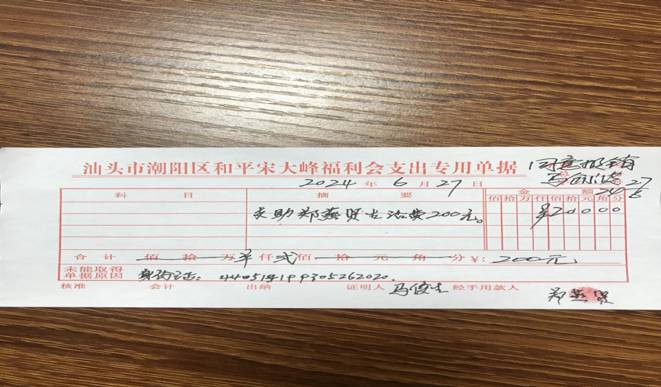 汕头市潮阳区和平宋大峰福利会支出专用单据
同意报销
2024年6月27日
27/6
科目 摘要 金额
佰拾万仟佰拾元角分
支助郑燕贤生活费200元。 ¥20000
合计 佰拾万仟贰佰拾元角分 ¥: 200元
未能取得单据原因 身份证: 440514199305262020.
核准 会计 出纳 证明人 马俊生 经手用款人 郑燕贤